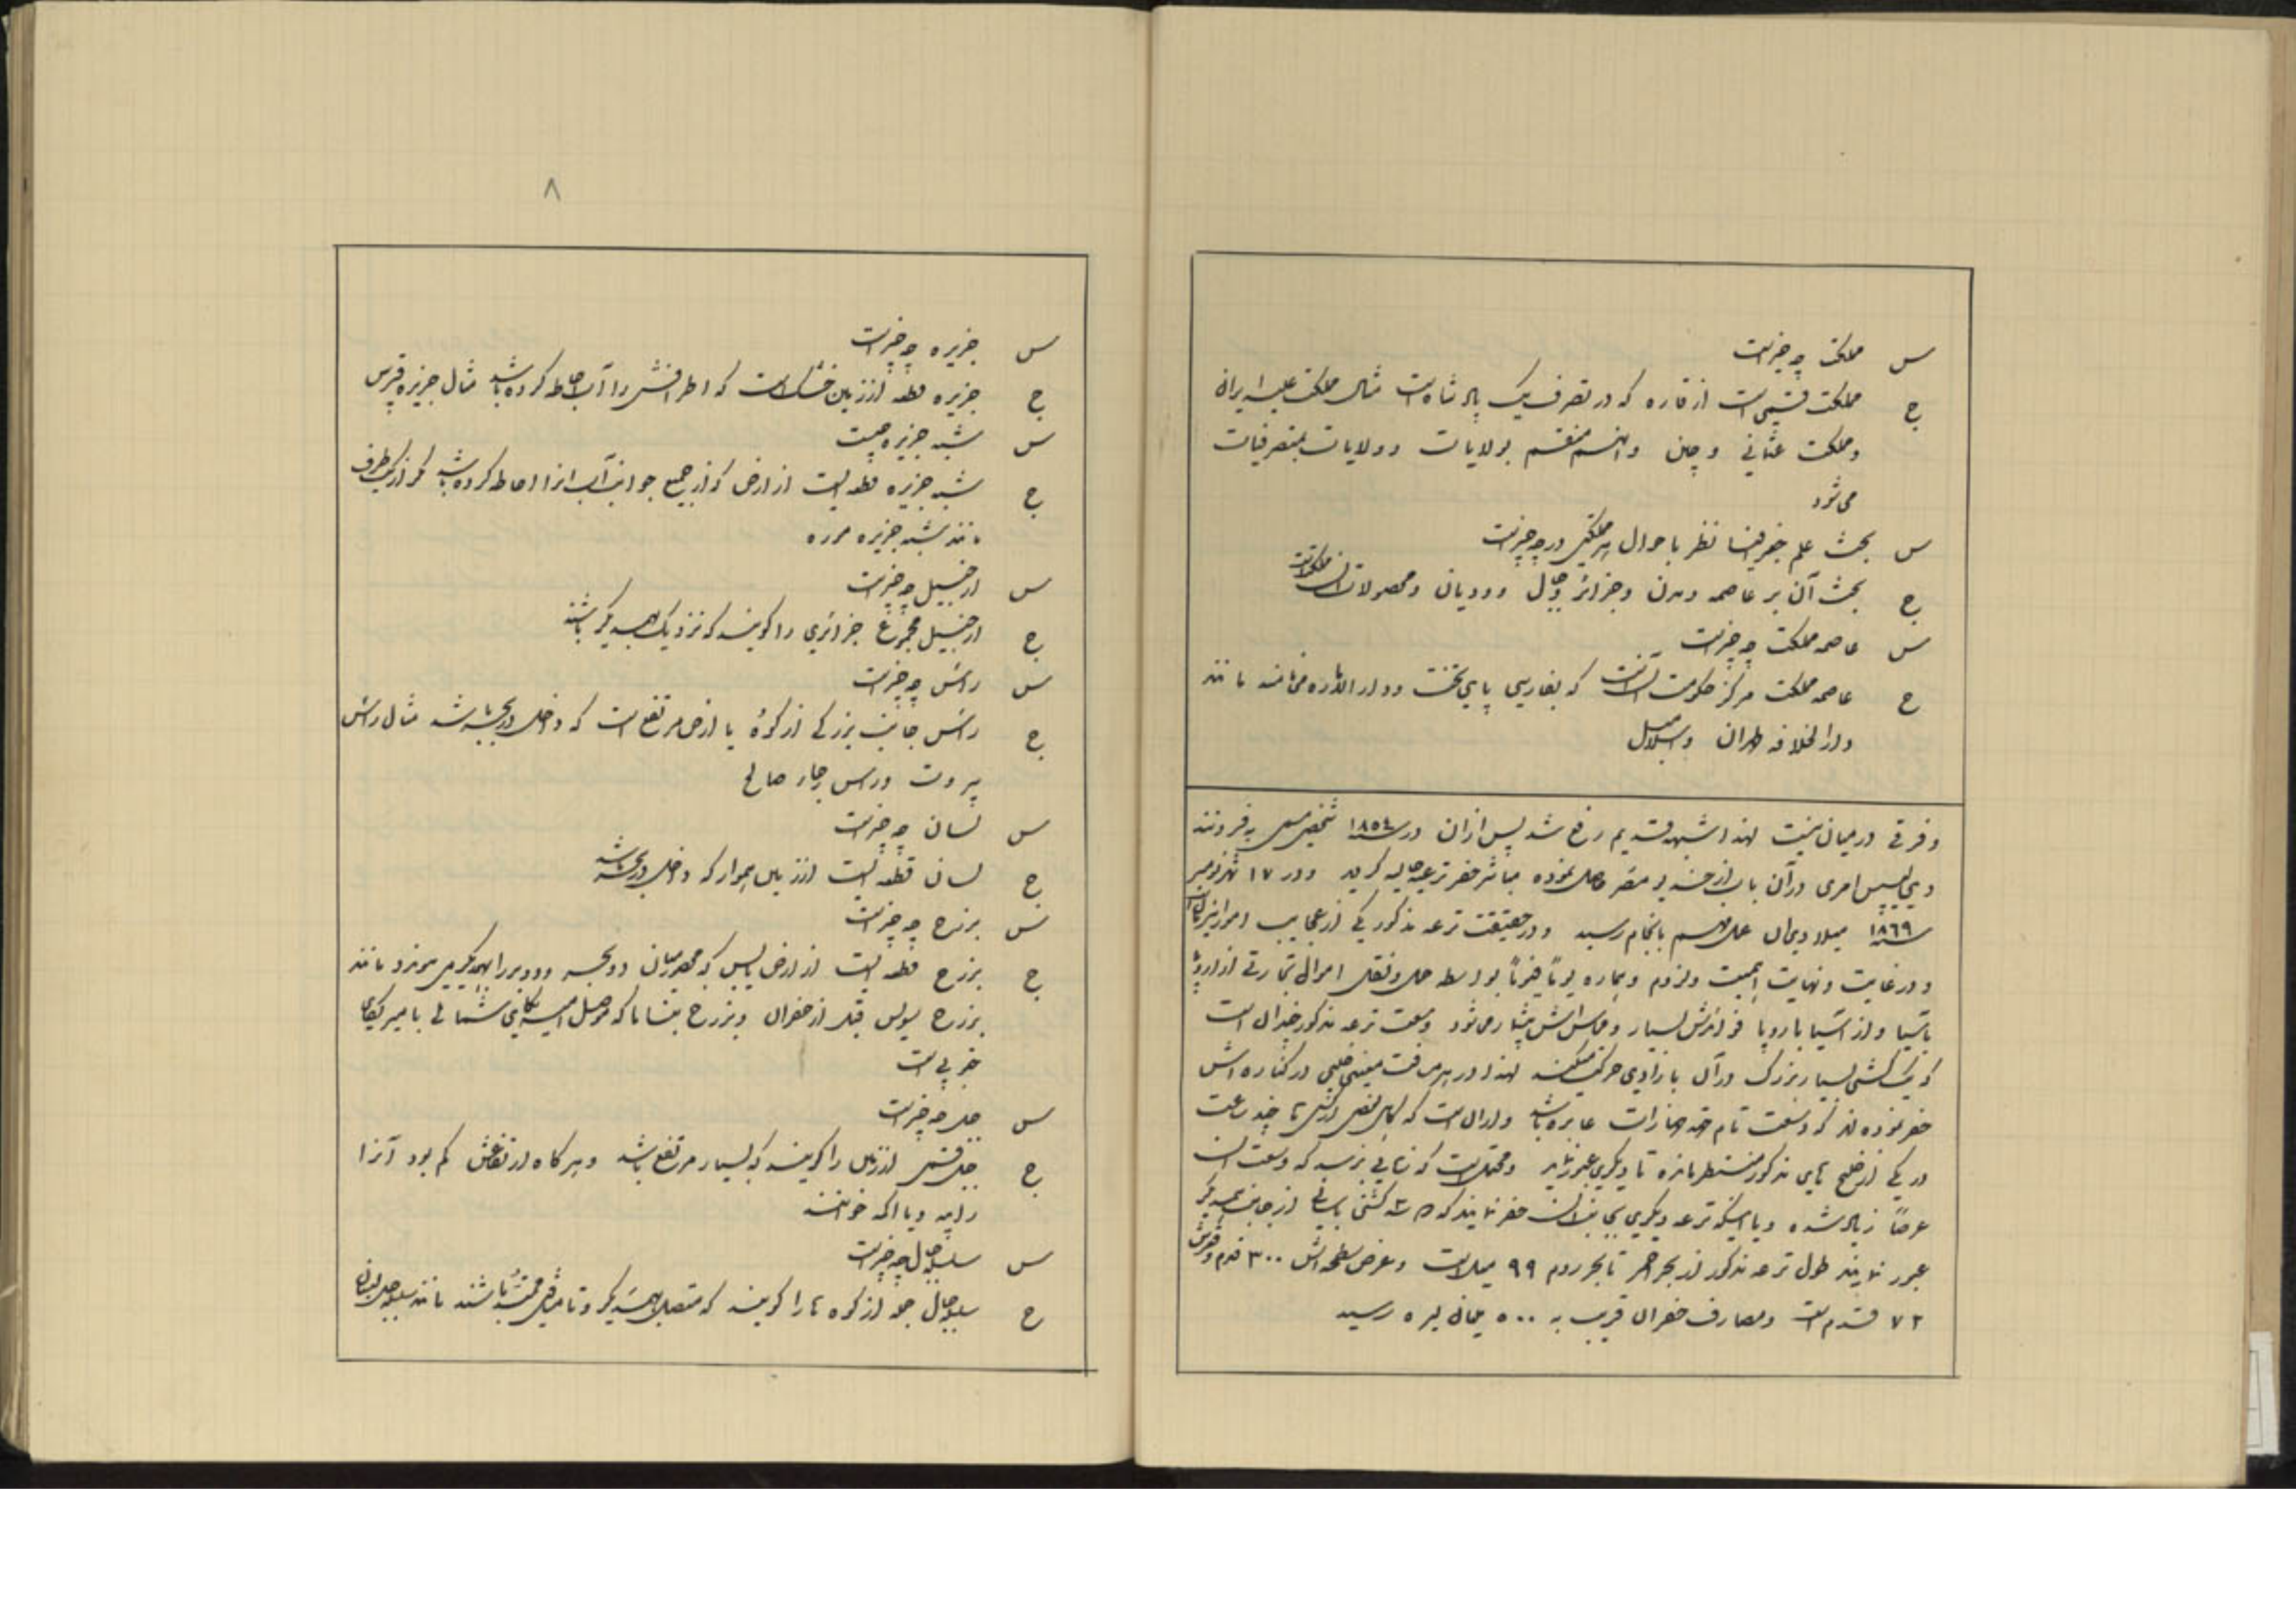 س مملکت چه چیز است
ج مملکت قسمی است از قاره که در تصرف یک پادشاه است مثال مملکت علیه ایران
و مملکت عثمانی و چین و آنهم منقسم بولایات و ولایات بمتصرفیات
می شود
س بحث علم جغرافیا نظر باحوال هر مملکتی در چه چیز است
ج بحث آن بر عاصمه و مدن و جزائر و جبال و رودیان و محصولات آن مملکت است
س عاصمه مملکت چه چیز است
ج عاصمه مملکت مرکز حکومت آنست که بفارسی پای تخت و دار الاماره می نامند مانند
دار الخلافه طهران و اسلامبول
و فرقی در میان نیست لهذا شبهه قدیم رفع شد پس از آن در سنه ١٨٥٤ شخصی مسمی به فردنند
دی لیسپس امری در آن باب از خدیو مصر حاصل نموده مباشر حفر ترعه حالیه گردید و در ١٧ شهر نومبر
سنه ١٨٦٩ میلادی آن عمل مهم بانجام رسید و در حقیقت ترعه مذکور یکی از عجایب امور این زمان است
و در غایت و نهایت اهمیت و لزوم و هماره یوماً فیوماً بواسطه حمل و نقل اموال تجارتی از اروپا
باسیا و از آسیا باروپا فوائدش بسیار و محاسنش بیشمار می شود وسعت ترعه مذکور چندان است
که یک کشتی بسیار بزرگ در آن بازادی حرکت میکند لهذا در هر مسافت معینی خلیجی در کناره اش
حفر نموده اند که وسعت تام جهازات عابره باشد و در آن است که گاهی بعضی از کشتی تا چند ساعت
در یکی از خلیج های مذکور منتظر مانده تا دیگری عبور نماید و محتمل است که زمانی برسد که وسعت آن
عرضاً زیاد شده و یا اینکه ترعه دیگری بجانب آن حفر نمایند که دسته کشتی بآسانی از جانب همدیگر
عبور نمایند طول ترعه مذکور از بحر احمر تا بحر روم ٩٩ میل است و عرض سطحه اش ٣٠٠ قدم و قعرش
٧٢ قدم است و مصارف حفر آن قریب به ٥٠٠ لیره رسید
٨
س جزیره چه چیز است
ج جزیره قطعه از زمین خشک است که اطرافش را آب احاطه کرده باشد مثال جزیره قبرس
س شبه جزیره چیست
ج شبه جزیره قطعه ایست از ارض که از جمیع جوانب آب آنرا احاطه کرده باشد مگر از یک طرف
مانند شبه جزیره موره
س ارخبیل چه چیز است
ج ارخبیل مجموع جزائری را گویند که نزدیک بهمدیگر باشند
س رأس چه چیز است
ج رأس جانب بزرگی از کوه یا ارض مرتفع است که داخل در بحر باشد مثال رأس
بیروت و رأس رجاء صالح
س لسان چه چیز است
ج لسان قطعه ایست از زمین هموار که داخل در بحر باشد
س برزخ چه چیز است
ج برزخ قطعه ایست از ارض یابس که محصور میان دو بحر و دو بر را بهمدیگر می پیوندد مانند
برزخ سویس قبل از حفر آن و برزخ پناما که موصل امیریکای شمالی بامیریکای
جنوبی است
س جبل چه چیز است
ج جبل قسمی از زمین را گویند که بسیار مرتفع باشد و هر گاه ارتفاعش کم بود آنرا
رابیه و یا اکمه خوانند
س سلسله جبال چه چیز است
ج سلسله جبال جمله از کوه ها را گویند که متصل بهمدیگر و تا مسافتی ممتد باشند مانند سلسله جبل لبنان